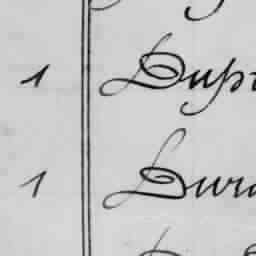 1 Dupr
1 Dura